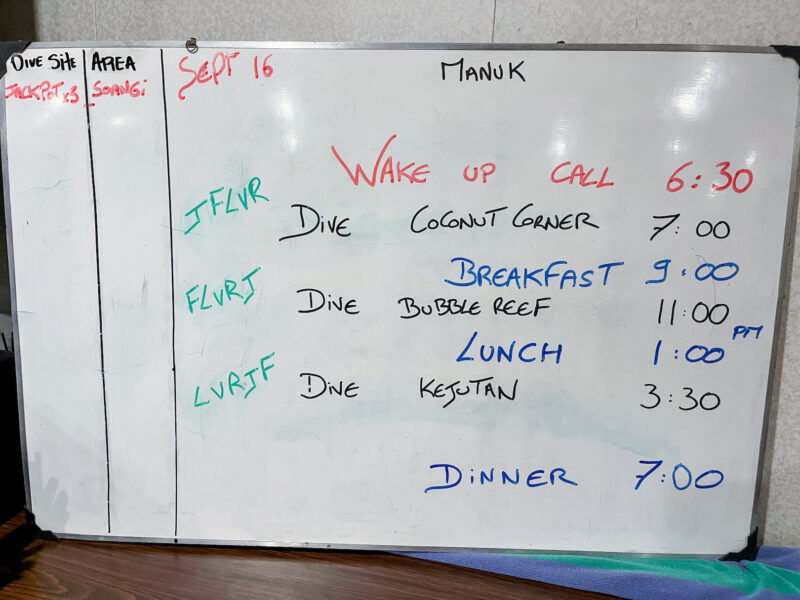 DIVE SITE AREA SEPT 16 MANUK
JACKPOT x3 SOANGI
WAKE UP CALL 6:30
JFLVR DIVE COCONUT CORNER 7:00
BREAKFAST 9:00
FLVRJ DIVE BUBBLE REEF 11:00
LUNCH 1:00 PM
LVRJF DIVE KEJUTAN 3:30
DINNER 7:00